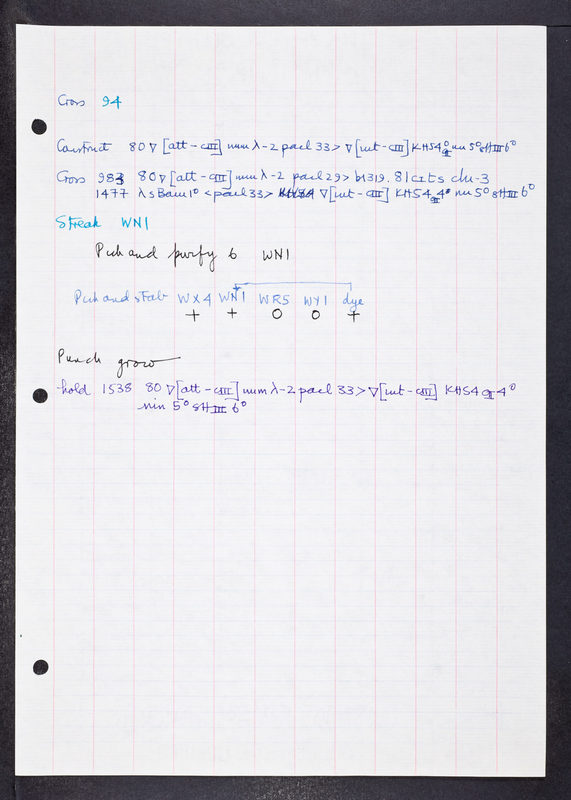 Cross 94
Construct 80 ∇ [att - cIII] imm λ-2 pacl 33 > ∇ [int - cIII] KH54 nin 5° sHIII 6°
Cross 983 80 ∇ [att - cIII] imm λ-2 pacl 29 > b1319. 81 cI ts chi-3
1477 λ sBam 1° < pacl 33 > ∇ [int - cIII] KH54 4° nin 5° sHIII 6°
Streak WN1
Pick and purify 6 WN1
Pick and stab WX4 WN1 WR5 WY1 dye
+ + O O +
Punch grow
hold 1538 80 ∇ [att - cIII] imm λ-2 pacl 33 > ∇ [int - cIII] KH54 4°
nin 5° sHIII 6°